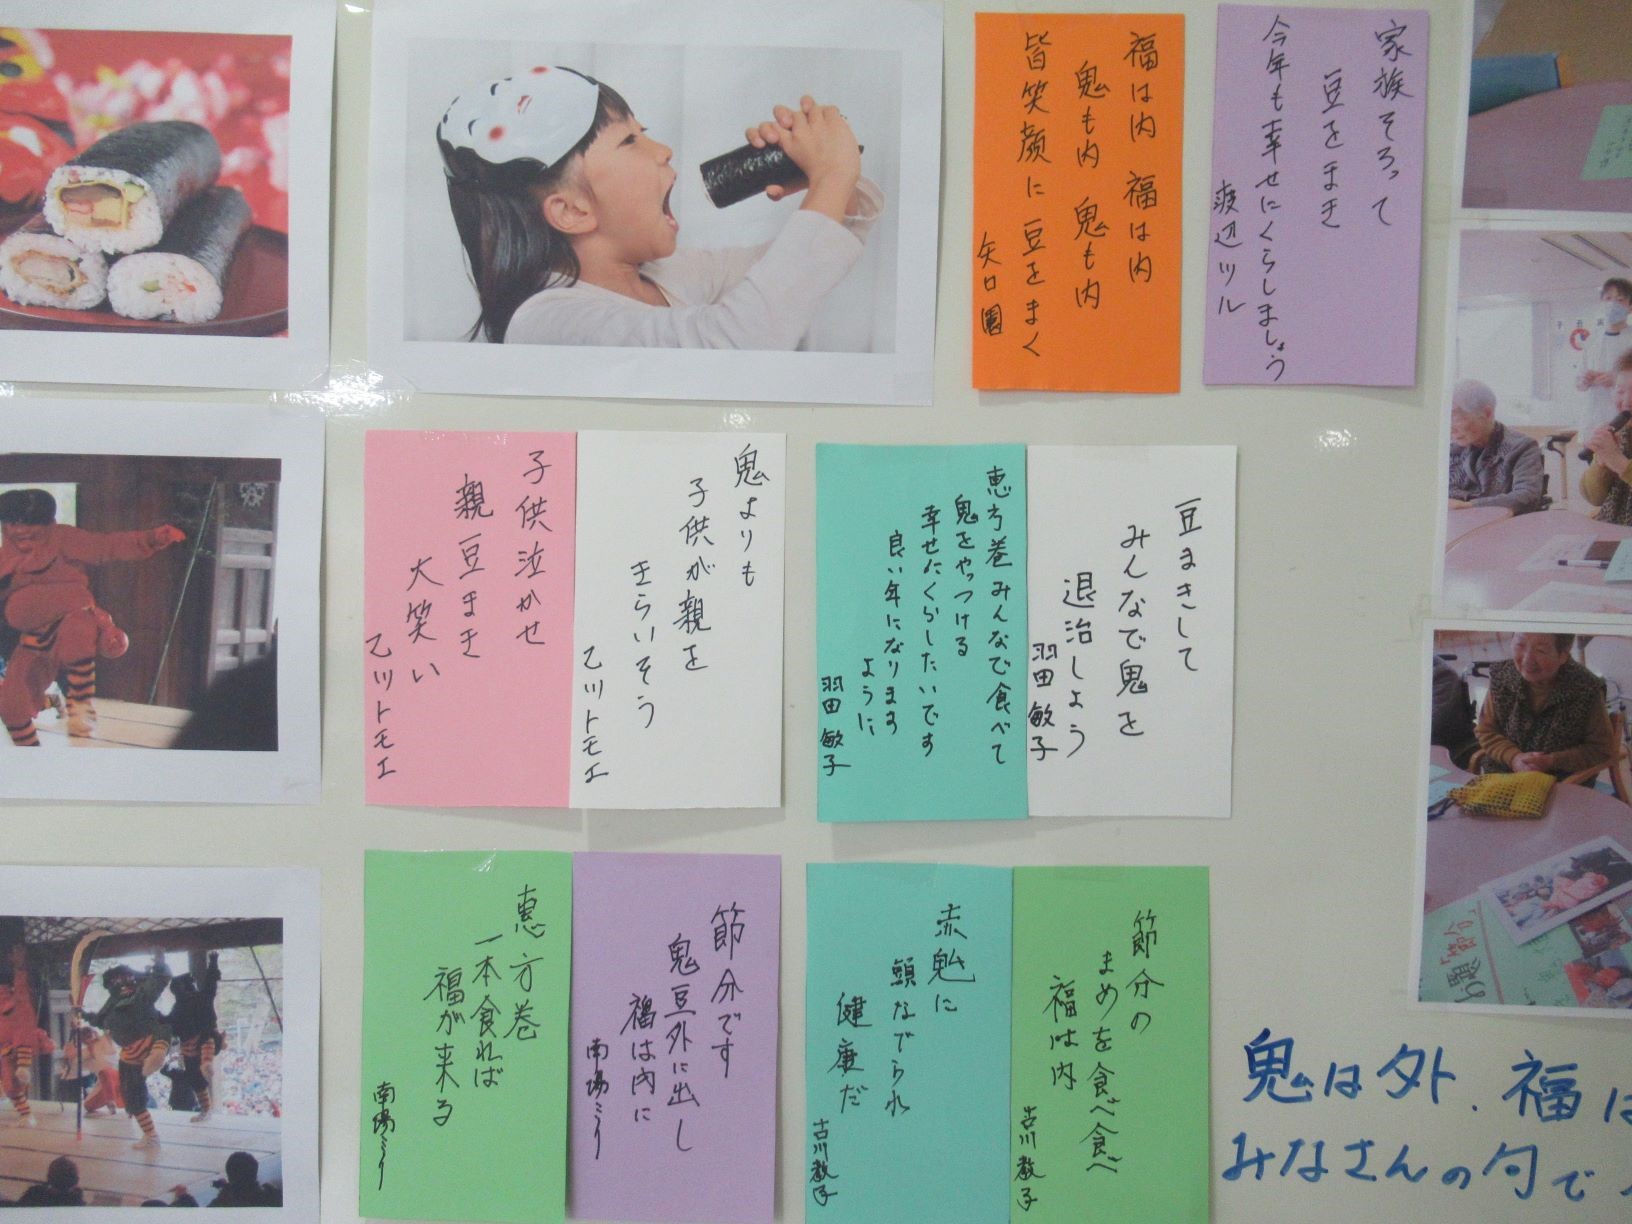 家族そろって
豆をまき
今年も幸せにくらしましょう
渡辺ツル
福は内 福は内
鬼も内 鬼も内
皆笑顔に 豆をまく
矢口園
豆まきして
みんなで鬼を
退治しよう
羽田敏子
恵方巻みんなで食べて
鬼をやっつける
幸せにくらしたいです
良い年になります
ように
羽田敏子
鬼よりも
子供が親を
きらいそう
乙川トモエ
子供泣かせ
親豆まき
大笑い
乙川トモエ
節分の
まめを食べ食べ
福は内
古川教子
赤鬼に
頭なでられ
健康だ
古川教子
節分です
鬼豆外に出し
福は内に
南場ミツリ
恵方巻
一本食れば
福が来る
南場ミツリ
鬼は外、福は
みなさんの句で